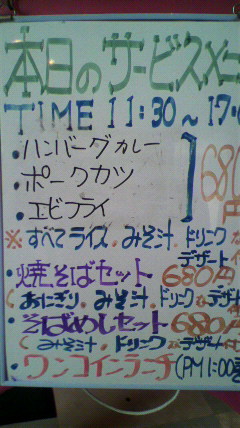 本日のサービスメニ
TIME 11:30~17:0
・ハンバーグカレー
・ポークカツ
・エビフライ
680円
※すべてライス.みそ汁.ドリンク
デザート
・焼そばセット 680円
(おにぎり.みそ汁.ドリンク デザー
・そばめしセット 680円
(みそ汁.ドリンク デザート
・ワンコインランチ(PM1:00